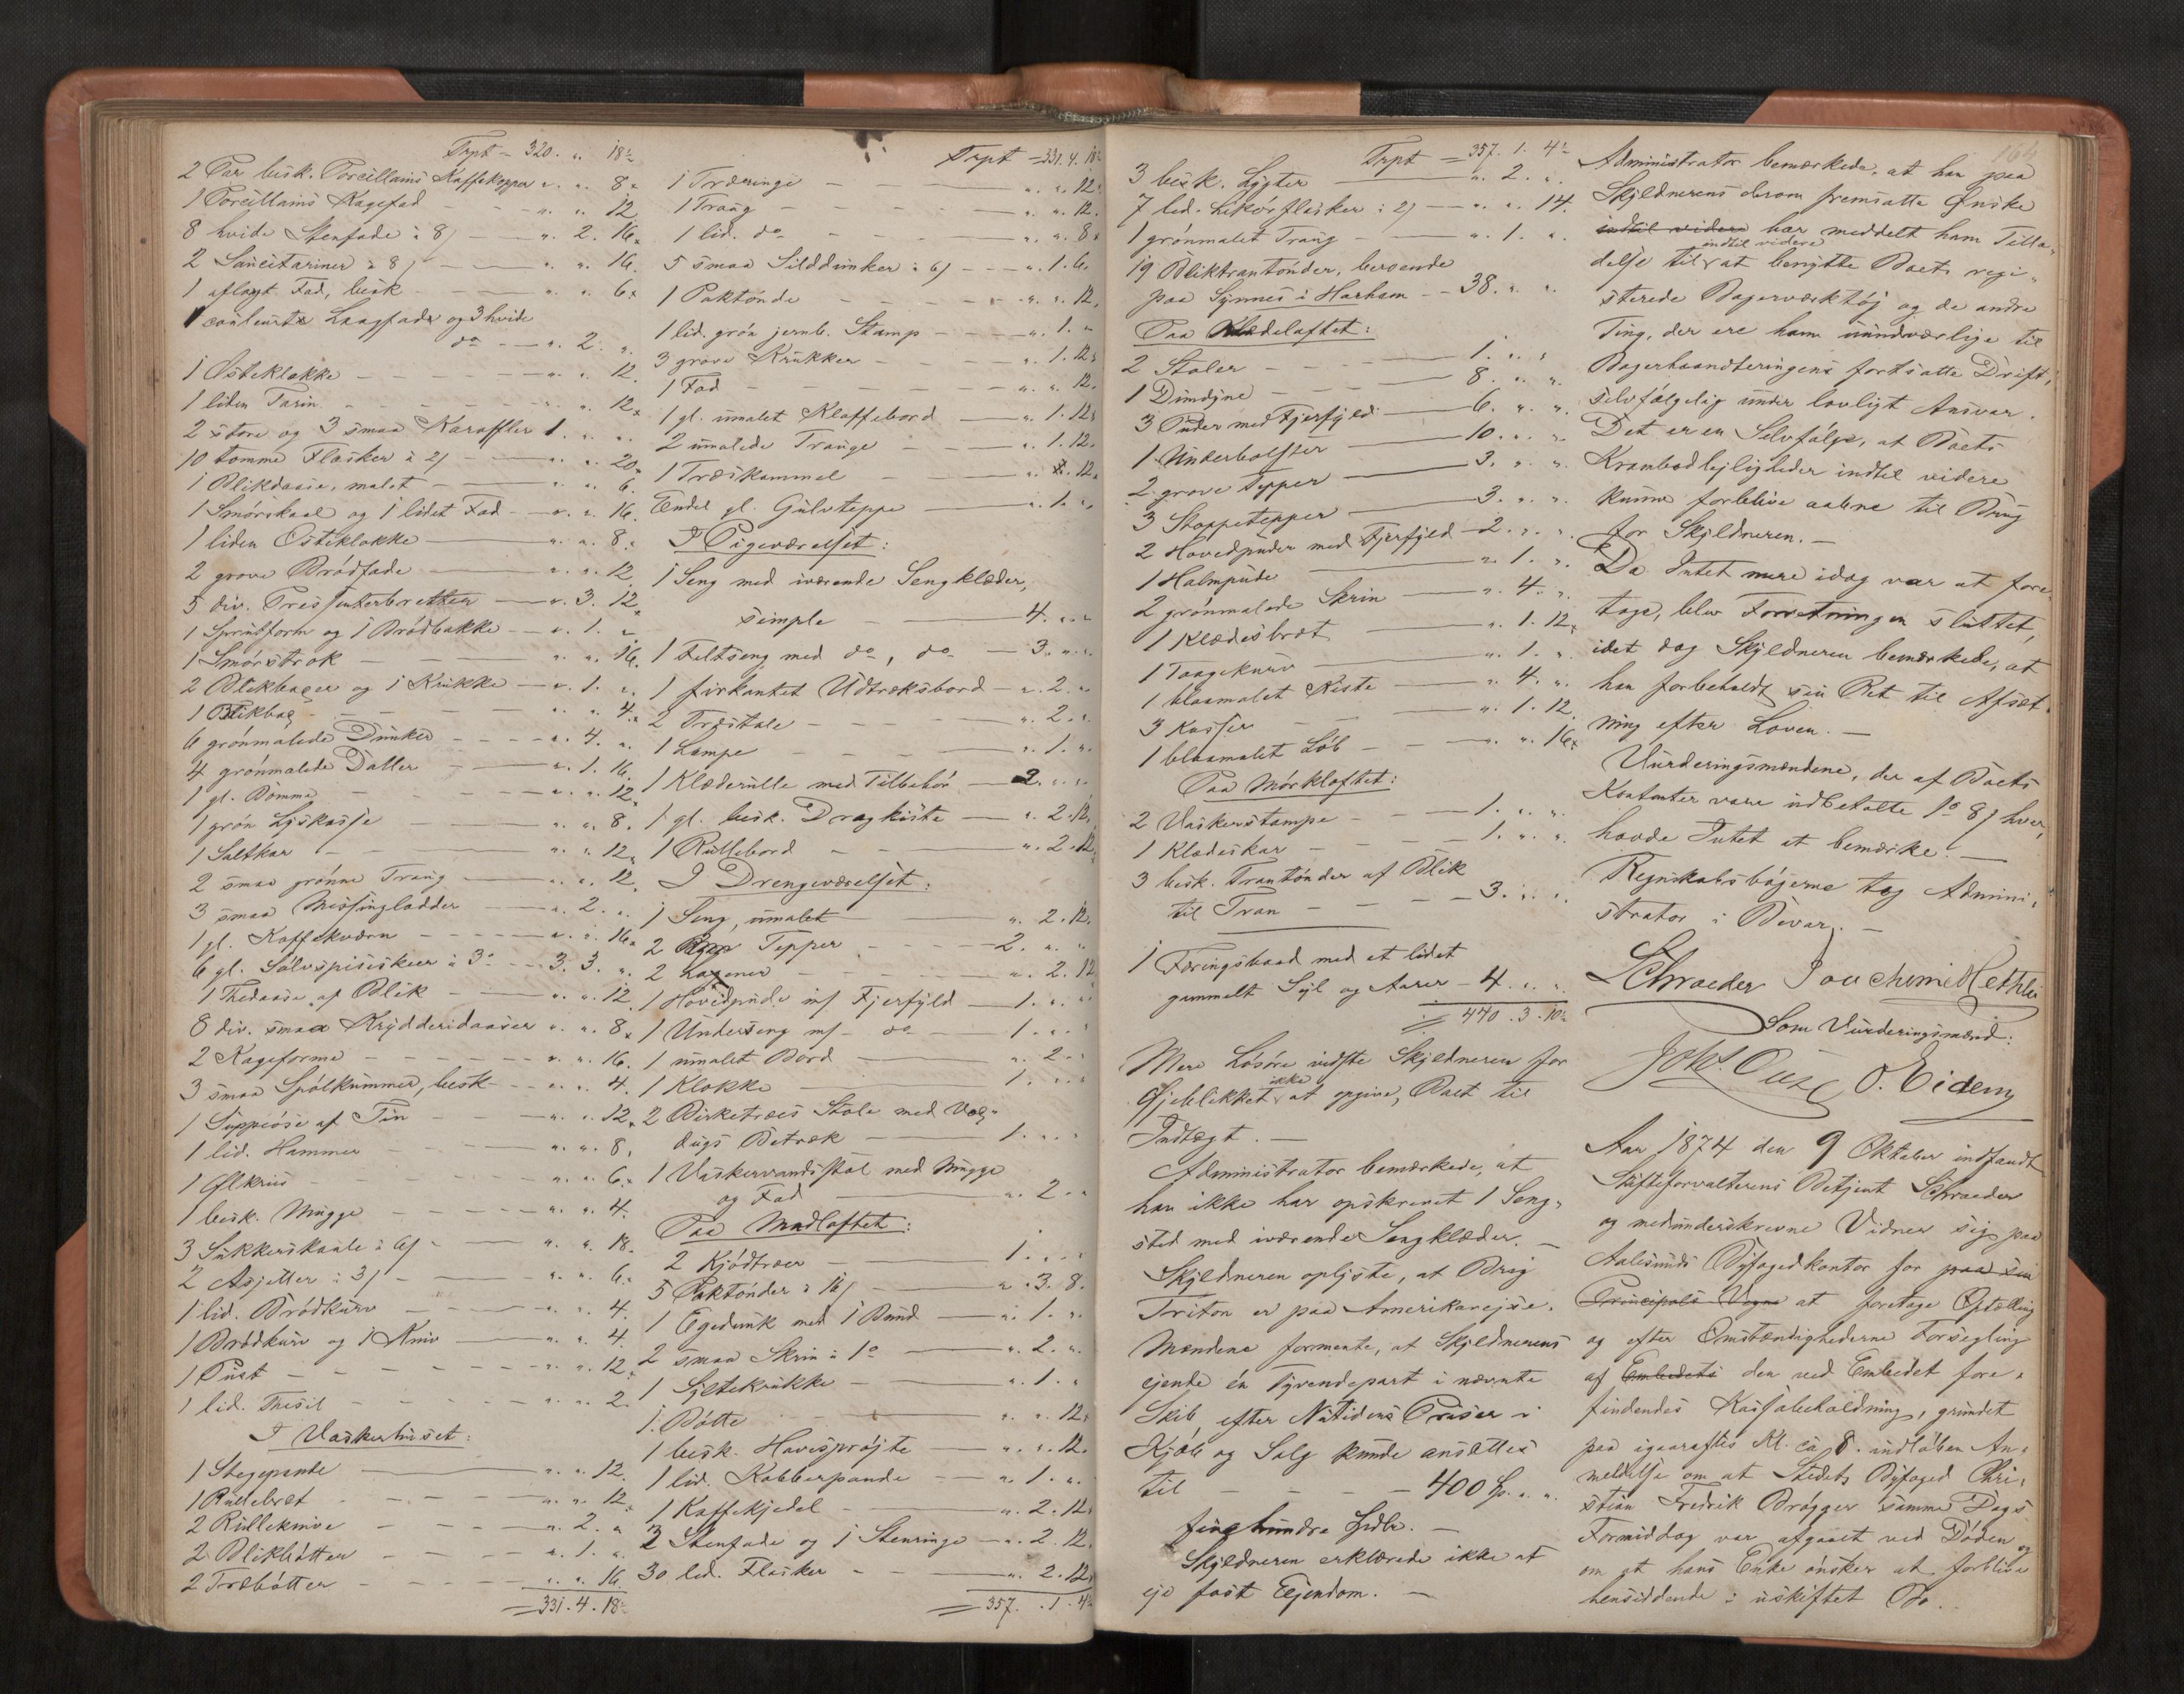 Trpt - 320. „ 18½
2 Par besk. Porcellains Kaffekopper „ „ 8.
1 Porcellains Kagefad — „ „ 12.
8 hvide Stenfade à 8/ — „ 2. 16.
2 Saucitariner à 8/ — „ „ 16.
1 aflagt Fad, besk — „ „ 6.
1 coulert Laagfad og 3 hvide
do — „ 2. „
1 Osteklokke — „ „ 12.
1 liden Tarin — „ „ 12.
2 store og 3 smaa Karafler 1. „ „
10 tomme Flasker à 2/ — „ „ 20.
1 Blikdaase, malet — „ „ 6.
1 Smørskaal og 1 lidet Fad — „ „ 16.
1 liden Osteklokke — „ „ 8.
2 grove Brødfade — „ „ 12.
5 div. Presenterbretter — „ 3. 12.
1 Sprudform og 1 Brødbakke — „ 1. „
1 Smørstrok — „ „ 16.
2 Blikbæger og 1 Krukke — „ 1. „
1 Blikbæg — „ „ 4.
6 grønmalede Dunker — „ 4. „
4 grønmalede Daller — „ 1. 16.
1 gl. Bomme — „ „ 12.
1 grøn Lyskasse — „ „ 8.
1 Saltkar — „ „ 12.
2 smaa grønne Traug — „ „ 12.
3 smaa Messinglodder — „ 2. „
1 gl. Kaffekværn — „ „ 16.
6 gl. Sølvspiseskeer à 3 — 3. 3. „
1 Thedaase af Blik — „ „ 12.
8 div. smaa Krydderidaaser „ „ 8.
2 Kageforme — „ „ 16.
3 smaa Spølkummer, besk — „ „ 4.
1 Suppeøse af Tin — „ „ 12.
1 lid. Hammer — „ „ 8.
1 Ølkrus — „ „ 6.
1 besk. Mugge — „ „ 4.
3 Sukkerskaale à 6/ — „ „ 18.
2 Asjetter à 3/ — „ „ 6.
1 lid. Brødkurv — „ „ 4.
1 Brødkurv og 1 Kniv — „ „ 4.
1 Pust — „ „ 12.
1 lid. Thesil — „ „ 2.
I Vaskerhuset:
1 Stegepande — „ „ 12.
1 Rullebræt — „ „ 12.
2 Rulleknive — „ 2. „
2 Blikbøtter — „ 1. „
2 Træbøtter — „ „ 16
= 331. 4. 18½
Trpt = 331. 4. 18½
1 Træringe — „ „ 12.
1 Traug — „ „ 12.
1 lid. do — „ „ 8.
5 smaa Silddunker à 6/ — „ 1. 6.
1 Paktønde — „ „ 12.
1 lid. grøn jernb. Stamp — „ 1. „
3 grove Krukker — „ 1. 12.
1 Fad — „ „ 12.
1 gl. umalet Klaffebord — „ 1. 12.
2 umalede Trauge — „ 1. 12.
1 Træskammel — „ „ 12.
Endel gl. Gulvteppe — „ 1. „
I Pigeværelset:
1 Seng med iværende Sengklæder,
simple — 4. „ „
1 Feltseng med do, do — 3. „ „
1 firkantet Udtræksbord — „ 2. „
2 Træstole — „ 2. „
1 Lampe — „ 1. „
1 Klæderulle med Tilbehør — 2. „ „
1 gl. besk. Dragkiste — „ 2. 12.
1 Rullebord — „ 2. 12.
I Drengeværelset:
1 Seng, umalet — „ 2. 12.
2 Tepper — 2. „ „
2 Lagener — „ 2. 12
1 Hovedpude m/ Fjerfyld — 1. „ „
1 Underseng m/ do — 1. „ „
1 umalet Bord — „ 2. „
1 Klokke — 1. „ „
2 Birketræes Stole med Vox-
dugs Betræk — 1. „ „
1 Vaskervandsstol med Mugge
og Fad — „ 2. „
Paa Madloftet:
2 Kjødtræer — 1. „ „
5 Paktønder à 16/ — „ 3. 8.
1 Egedunk med 1 Bund — „ 1. „
2 smaa Skrin à 1 — „ 2. „
1 Syltekrukke — „ 1. „
1 Bøtte — „ „ 12.
1 besk. Havesprøjte — „ „ 12.
1 lid. Kobberpande — „ 1. „
1 Kaffekjedel — „ 2. 12.
2 Stenfade og 1 Stenringe — „ 2. 12.
30 led. Flasker — „ 2. 12.
= 357. 1. 4½
Trpt = 357. 1. 4½
3 besk. Lygter — „ 2. „
7 led. Likörflasker à 2/ — „ „ 14.
1 grønmalet Traug — „ 1. „
19 Bliktrantønder, beroende
paa Synnes i Harham — 38. „ „
Paa Klædeloftet:
2 Stoler — 1. „ „
1 Dundyne — 8. „ „
3 Puder med Fjerfyld — 6. „ „
1 Underbolster — 10. „ „
2 grove Tepper — 3. „ „
3 Stoppetepper — 3. „ „
2 Hovedpuder med Fjerfyld — 2. „ „
1 Halmpude — „ 1. „
2 grønmalede Skrin — „ 4. „
1 Klædesbræt — „ 1. 12.
1 Taagekurv — „ 1. „
1 blaamalet Kiste — „ 4. „
3 Kasser — „ 1. 12.
1 blaamalet Løb — „ „ 16.
Paa Mørkloftet:
2 Vaskerstampe — 1. „ „
1 Klædeskar — 1. „ „
3 besk. Trantønder af Blik
til Tran — 3. „ „
1 Færingsbaad med et lidet
gammelt Sejl og Aarer — 4. „ „
= 440. 3. 10½
Mere Løsøre vidste Skyldneren for
Øjeblikket ikke at opgive, Boet til
Indtægt. —
Administrator bemærkede, at
han ikke har opskrevet 1 Seng-
sted med iværende Sengklæder. —
Skyldneren oplyste, at Brig
Triton er paa Amerikarejse.
Mændene formente, at Skyldnerens
ejende én Tyvendepart i nævnte
Skib efter Nutidens Priser i
Kjøb og Salg kunde ansættes
til — 400 Sp. „ „
fire hundre Spdlr. —
Skyldneren erklærede ikke at
eje fast Ejendom. —
164
Administrator bemærkede, at han paa
Skyldnerens derom fremsatte Ønske
indtil videre har meddelt ham Tilla-
delse til indtil videre at benytte Boets regi-
strerede Bagerværktøj og de andre
Ting, der ere ham uundværlige til
Bagerhaandteringens fortsatte Drift,
selvfølgelig under lovligt Ansvar.
Det er en Selvfølge, at Boets
Krambodlejligheder indtil videre
kunne forblive aabne til Brug
for Skyldneren. —
Da Intet mere idag var at fore-
tage, blev Forretningen sluttet,
idet dog Skyldneren bemærkede, at
han forbeholdt sin Ret til Afsæt-
ning efter Loven. —
Vurderingsmændene, der af Boets
Kontanter vare udbetalte 1 8/ hver,
havde Intet at bemærke. —
Regnskabsbøgerne tog Admini-
strator i Bevar. —
Schroeder Jouchim
Som Vurderingsmænd:
O. Eidem
Aar 1874 den 9 Oktober indfandt
Skifteforvalterens Betjent Schroeder
og medunderskrevne Vidner sig paa
Aalesunds Byfogedkontor for paa sin
Principals Vegne at foretage Optælling
og efter Omstændighederne Forsegling
af Embedets den ved Embedet fore-
findendes Kassabeholdning, grundet
paa igaaraftes Kl. ca 8. indløben An-
meldelse om at Stedets Byfoged Chri-
stian Fredrik Brøgger samme Dags
Formiddag var afgaaet ved Døden og
om at hans Enke ønsker at forblive
hensiddende i uskiftet Bo.